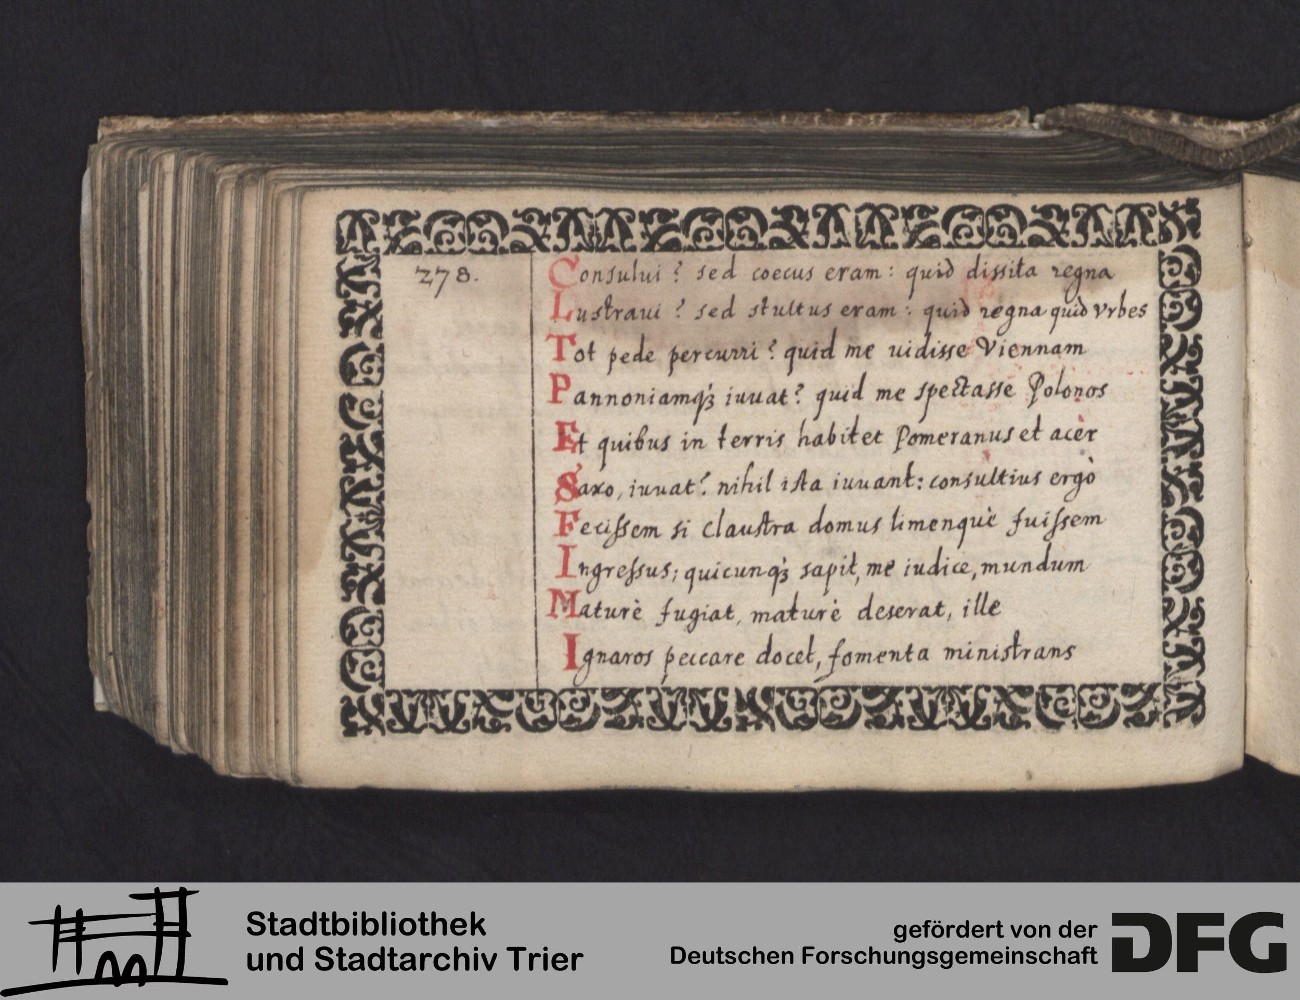 278.
Consului? sed coecus eram: quid dissita regna
Lustraui? sed stultus eram: quid regna quid vrbes
Tot pede percurri? quid me uidisse Viennam
Pannoniamqꝫ iuuat? quid me spectasse Polonos
Et quibus in terris habitet Pomeranus et acèr
Saxo, iuuat? nihil ista iuuant: consultius ergò
Fecissem si claustra domus limenquè fuissem
Ingressus; quicunqꝫ sapit, me iudice, mundum
Maturè fugiat, maturè deserat, ille
Ignaros peccare docet, fomenta ministrans
Stadtbibliothek
und Stadtarchiv Trier
gefördert von der
Deutschen Forschungsgemeinschaft
DFG